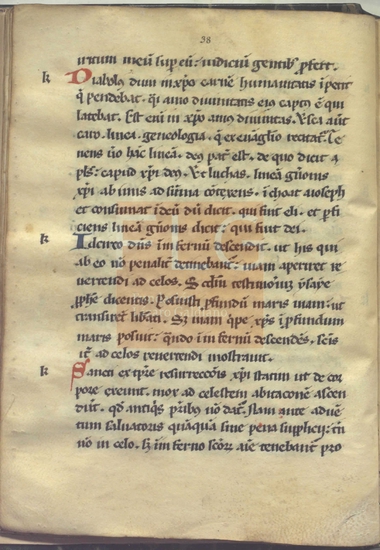 38
iritum meū sup eū: iudiciū gentib; pferet.
k Diabolus dum in xp̄o carnē humanitatis īpetit
q̄ pendebat. q̄si amo diuinitatis eius captus ē qui
latebat. Est enī in xp̄o amus diuinitas. esca aūt
caro. linea. geneologia. que ex euāglio recitat̄. Te
nens ūo hāc lineā. deus pat̄ est. de quo dicit a
pl's: capud xp̄i deus. et luchas. lineā gn̄onis
xp̄i ab imis ad sūma cōtexens. īchoat a ioseph
et consumat ī deū dū dicit. qui fuit eli. et pfi
ciens lineā gn̄onis dicit: qui fuit dei.
k Idcirco dn̄s in fernū descendit. ut his qui
ab eo nō penalit̄ detinebant̄: uiam aperiret re
uertendi ad celos. Scdm testimoniū ysaye
pphe dicentis. Posuisti pfundū maris uiam: ut
transirēt libati. Sz uiam q̄pe xp̄s ī pfundum
maris posuit: q̄ndo ī infernū descendēs. sc̄is
it̄ ad celos reuertendi monstrauit.
k Sancti ex tp̄re resurrecc̄ois xp̄i statim ut de cor
pore exeunt. mox ad celestem abitacōnē ascen
dūt. qd antiq̄s patribus nō dabat̄. Nam ante aduē
tum saluatoris quāquā sine pena supplicii: tn̄
nō in celo. sz inferno sc̄or aīe tenebant̄ pro